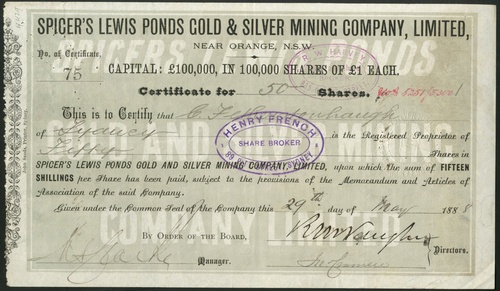 SPICER'S LEWIS PONDS GOLD & SILVER MINING COMPANY, LIMITED,
NEAR ORANGE, N.S.W.
No. of Certificate.
75
CAPITAL: £100,000, IN 100,000 SHARES OF £1 EACH.
Certificate for 50 Shares.
This is to Certify that
of Sydney is the Registered Proprietor of
Fifty Shares in
HENRY FRENCH
SHARE BROKER
SYDNEY
SPICER'S LEWIS PONDS GOLD AND SILVER MINING COMPANY, LIMITED, upon which the sum of FIFTEEN
SHILLINGS per Share has been paid, subject to the provisions of the Memorandum and Articles of
Association of the said Company.
Given under the Common Seal of the Company this 29th day of May 1888
BY ORDER OF THE BOARD,
Manager.
Directors.